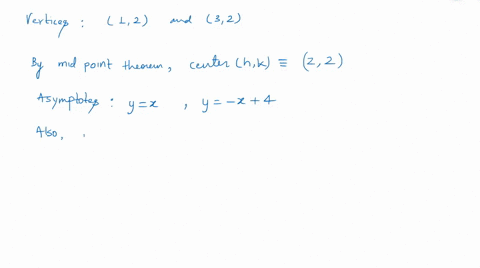 Vertices : (1,2) and (3,2)
By mid point theorem, center (h,k) ≡ (2,2)
Asymptotes : y=x , y=-x+4
Also,